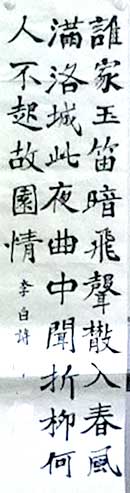 誰家玉笛暗飛聲散入春風
滿洛城此夜曲中聞折柳何
人不起故園情
李白詩